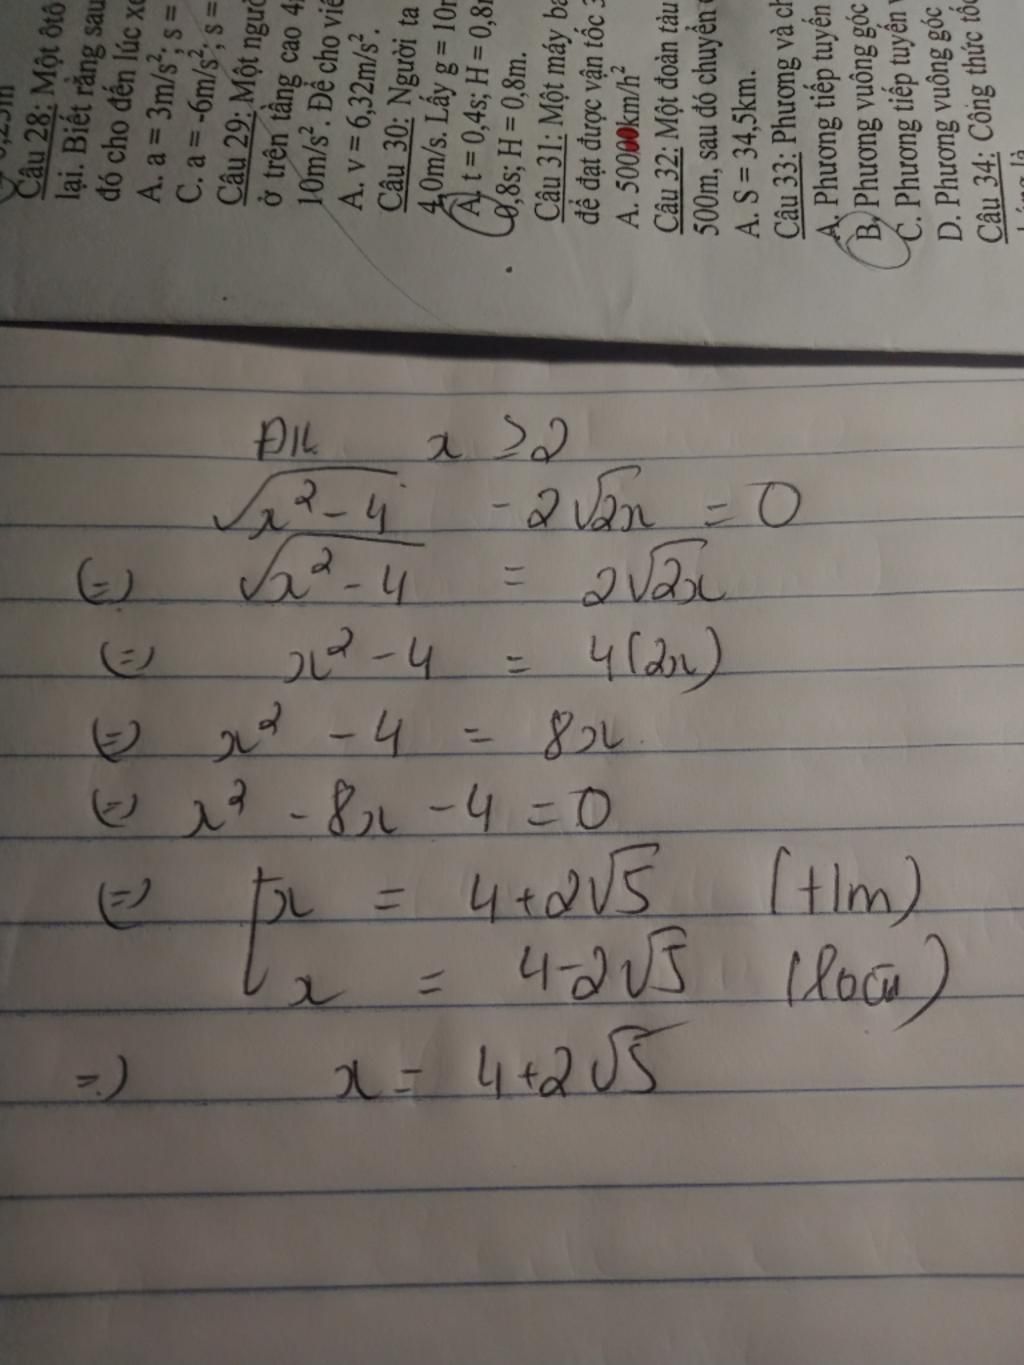 0,25m
Câu 28: Một ôtô
lại. Biết rằng sau
đó cho đến lúc
A. a = 3m/s²; s =
C. a = -6m/s²; s =
Câu 29: Một
ở trên tầng cao
10m/s². Để cho
A. v = 6,32m/s².
Câu 30: Người ta
4,0m/s. Lấy g =
A. t = 0,4s; H = 0,8m
0,8s; H = 0,8m.
Câu 31: Một máy
để đạt được vận tốc
A. 50000km/h²
Câu 32: Một đoàn tàu
500m, sau đó chuyển
A. S = 34,5km.
Câu 33: Phương và
A. Phương tiếp tuyến
B. Phương vuông góc
C. Phương tiếp tuyến
D. Phương vuông góc
Câu 34: Công thức
ĐK x ≥ 2
√(x² - 4) - 2√2x = 0
(=) √(x² - 4) = 2√2x
(=) x² - 4 = 4(2x)
(=) x² - 4 = 8x
(=) x² - 8x - 4 = 0
(=) [ x = 4 + 2√5 (t/m)
x = 4 - 2√5 (loại)
=) x = 4 + 2√5